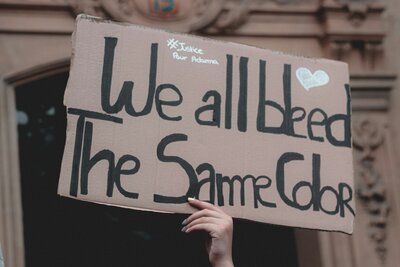 #Justice
Pour Adama
We all bleed
The Same Color